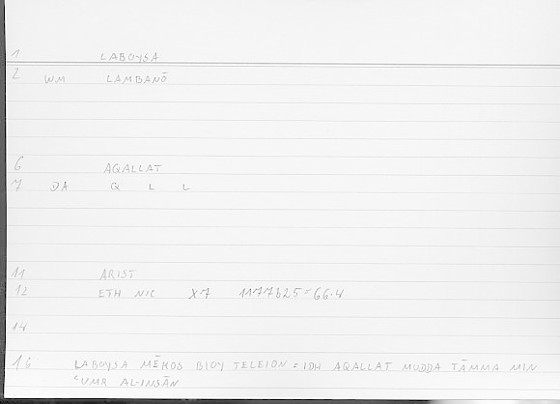 1 LABOYSA
2 WM LAMBANŌ
6 AQALLAT
7 DA Q L L
11 ARIST
12 ETH NIC X7 1177b25=66.4
14
16 LABOYSA MĒKOS BIOY TELEION = IDH AQALLAT MUDDA TĀMMA MIN
ʿUMR AL-INSĀN